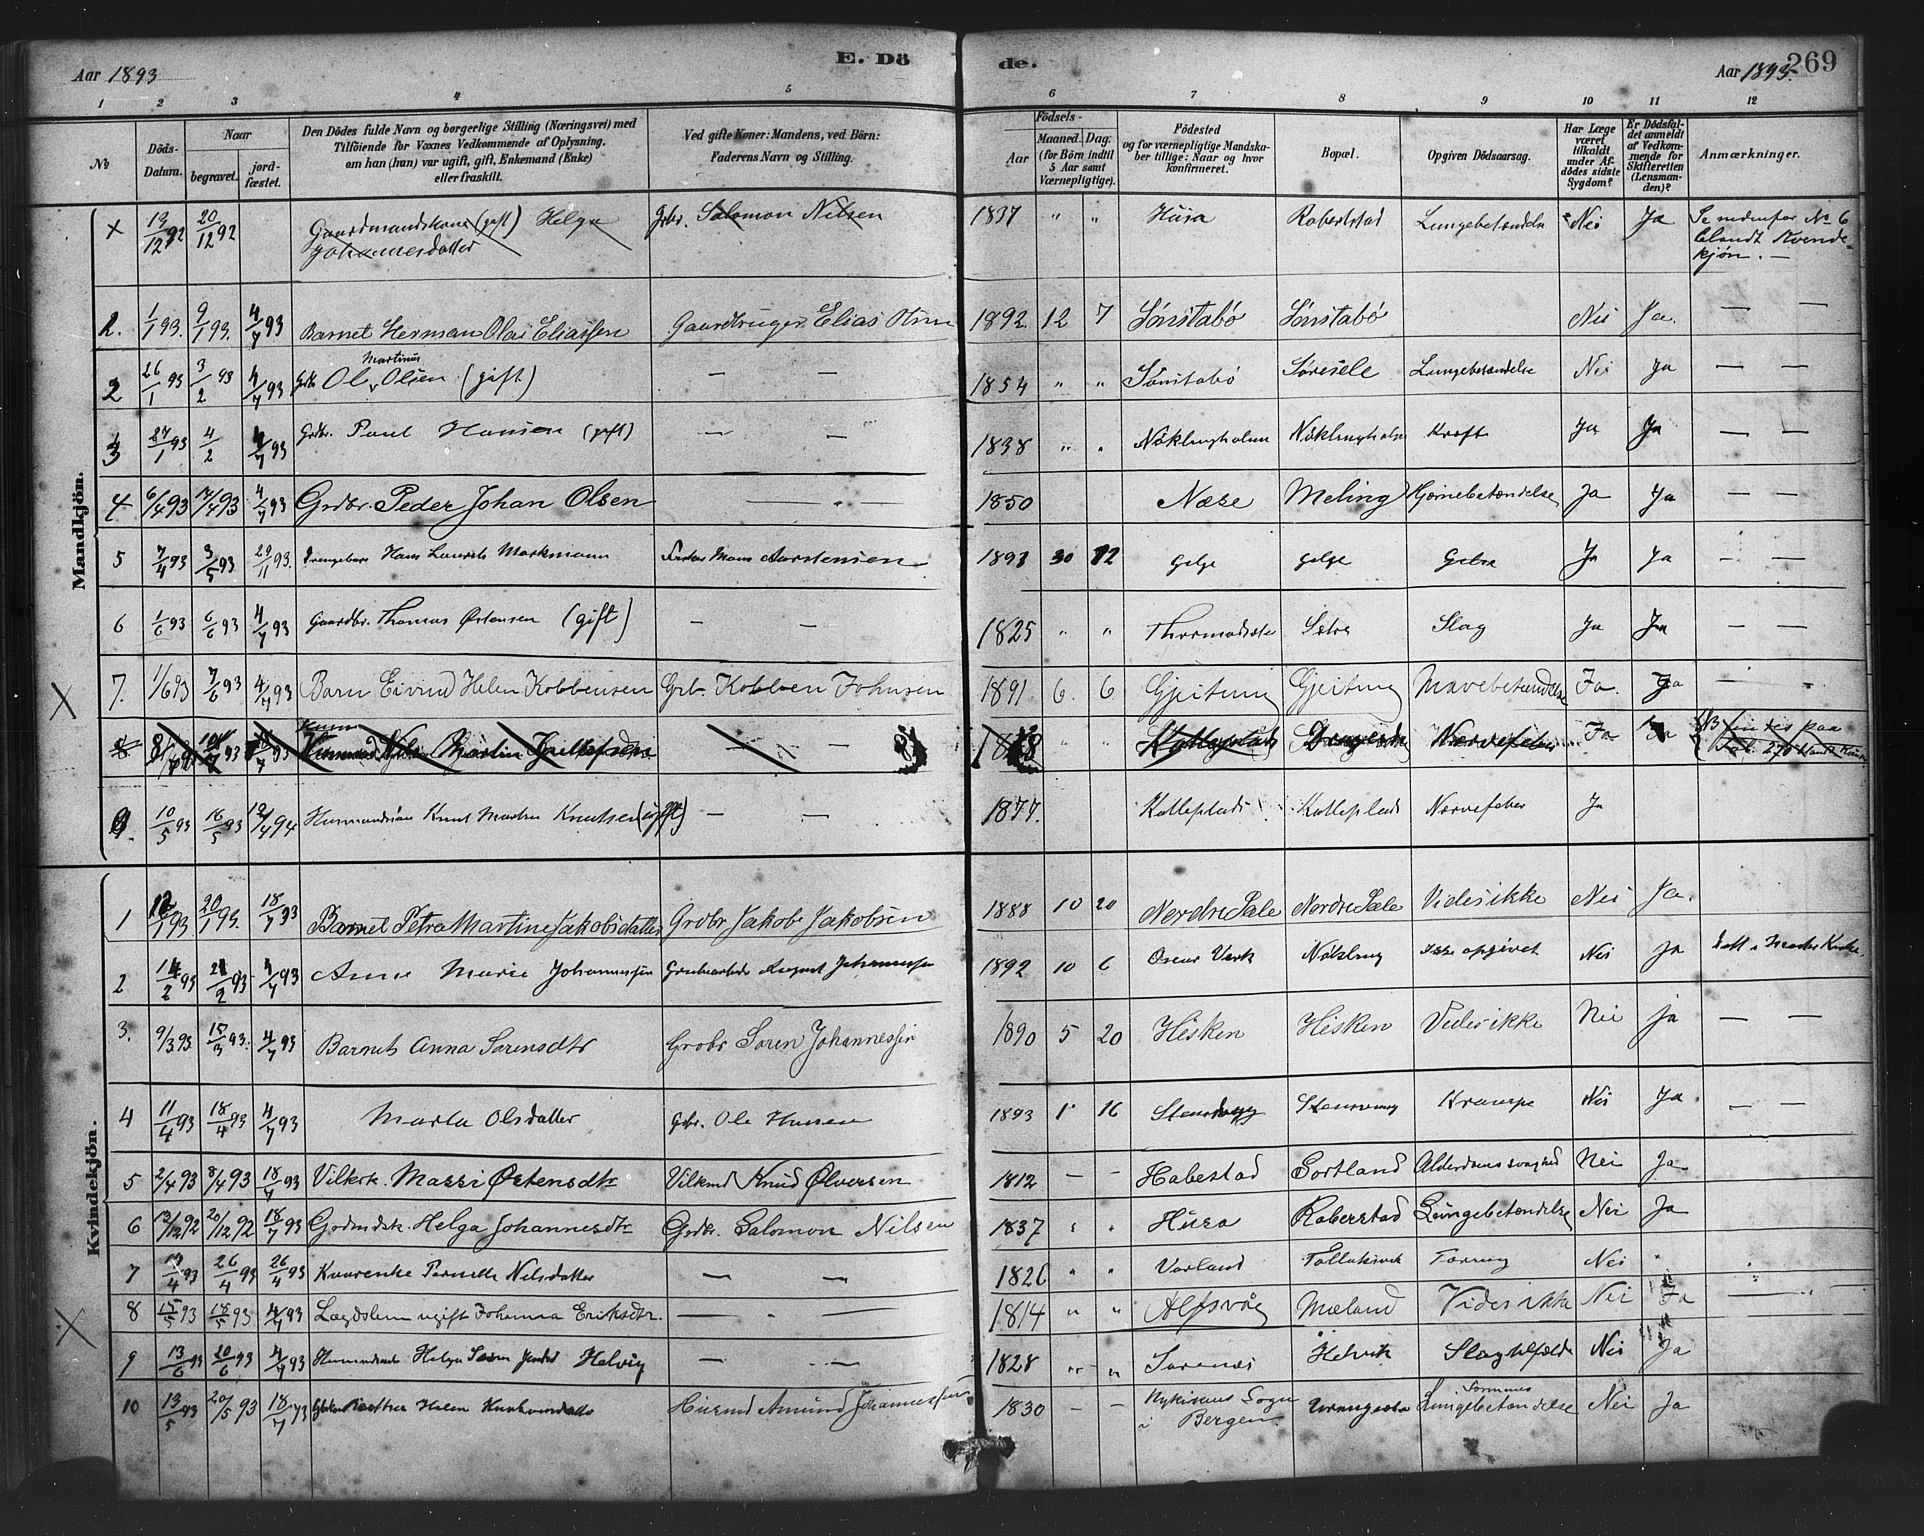 Aar 1893
E. Dö
de.
Aar 1893. 269
1 2 3 4 5 6 7 8 9 10 11 12
No
Döds-Datum.
Naar
begravet.
jord-fæstet.
Den Dödes fulde Navn og borgerlige Stilling (Næringsvei) med
Tilföiende for Voxnes Vedkommende af Oplysning,
om han (hun) var ugift, gift, Enkemand (Enke)
eller fraskilt.
Ved gifte Koner: Mandens, ved Börn:
Faderens Navn og Stilling.
Födsels-
Aar
Maaned. Dag.
(for Börn indtil
5 Aar samt
Værnepligtige).
Födested
og for værnepligtige Mandska-
ber tillige: Naar og hvor
konfirmeret.
Bopæl.
Opgiven Dödsaarsag.
Har Læge
været
tilkaldt
under Af-
dödes sidste
Sygdom?
Er Dödsfal-
det anmeldt
af Vedkom-
mende for
Skifteretten
(Lensman-
den)?
Anmærkninger.
Mandkjön.
x 13/12 92 20/12 92 Gaardmandskone (gift) Helga Johannesdatter Grbr. Salomon Nilsen 1837 " " Husa Roberstad Lungebetændelse Nei Ja Se nedenfor No 6 blandt Kvindekjön. —
2. 1/1 93. 9/1 93. 4/7 93 Barnet Herman Olai Eliassen Gaardbruger Elias Olsen 1892 12 7 Sönstabö Sönstabö Nei Ja. — —
2 26/1 93 3/2 93 4/7 93 Grbr Ole Martinus Olsen (gift) — — 1854 " " Sönstabö Söresele Lungebetændelse Nei Ja — —
3 27/1 93 4/2 4/7 93 Grdbr. Paul Hansen (gift) — — 1838 " " Nöklingholm Nöklingholm Kræft Ja Ja — —
4 6/4 93 14/4 93 4/7 93 Grdbr. Peder Johan Olsen — " 1850 Næse Meling Hjernebetændelse Ja Ja — —
5 7/4 93 3/5 93 29/11 93. Drengebarn Hans Laurits Markmann Mons Karstensen 1893 30 12 Gelse Ja Ja — —
6 1/6 93 6/6 93 4/7 93 Gaardbr. Thomas Östensen (gift) — — 1825 " " Setre Slag Ja Ja — —
7. 1/6 93 7/6 93 4/7 93 Barn Eivind Helen Kobbensen Grb. Kobben Johnsen 1891 6. 6 Gjeitung Gjeitung Mavebetændelse Ja. Ja — .
8 Nils Martin — — " " Katlaplads Nærvefeber Ja Ja NB findes paa
9. 10/5 93 16/5 93 12/4 94 Husmandssön Knut Martin Knutsen (ugift) — — 1877. Katleplads Katleplads Nærvefeber Ja
Kvindekjön.
1 12/1 93 20/1 93. 18/7 93 Barnet Petra Martine Jakobsdatter Grdbr Jakob Jakobsen 1888 10 20 Nordre Sæle Nordre Sæle Vides ikke Nei Ja.
2 14/2 93 21/2 93 4/7 93 Anne Marie Johannessen Grubearbeider August Johannessen 1892 10 6 Oscar Værk Nökling Ikke opgivet Nei Ja
3. 9/3 93 15/3 93. 4/7 93 Barnet Anna Sorensdtr Grdbr Soren Johannessen 1890 5 20 Hisken Hisken Vides ikke Nei Ja — —
4 11/4 93 18/4 93 4/7 93 Marta Olsdatter Grbr. Ole Hansen 1893 1 16 Stensvaag Krampe Nei Ja. — —
5 2/4 93 8/4 93 18/7 93 Vilkrk. Massi Östensdtr Vilkmd Knud Ölversen 1812 — — Habestad Sortland Alderdomssvaghed Nei Ja
6 13/12 92 20/12 92 18/7 93 Grdmdsk. Helga Johannesdtr Grdbr. Salomon Nilsen 1837 " " Husa Roberstad Lungebetændelse Nei Ja
7 19/4 93 26/4 93 26/4 93 Kaarenke Pernille Nilsdatter — — 1826 " " Vorland Tæring Nei "
8 15/5 93 18/5 93 4/7 93 Lægdslem ugift Johanna Eriksdtr. — — 1814 " " Alfsvåg Mæland Vides ikke Nei Ja —
9 13/6 93 20/6 93 4/7 93 Helga Helvig — — 1828 " " Sorenæs Helvik Slagtilfælde Nei Ja
10 13/5 93 20/5 93 18/7 93 Helen Husmd Amund Johannessen 1830 — — Nykirkens Sogn i Bergen Urangsvaag Lungebetændelse Nei Ja